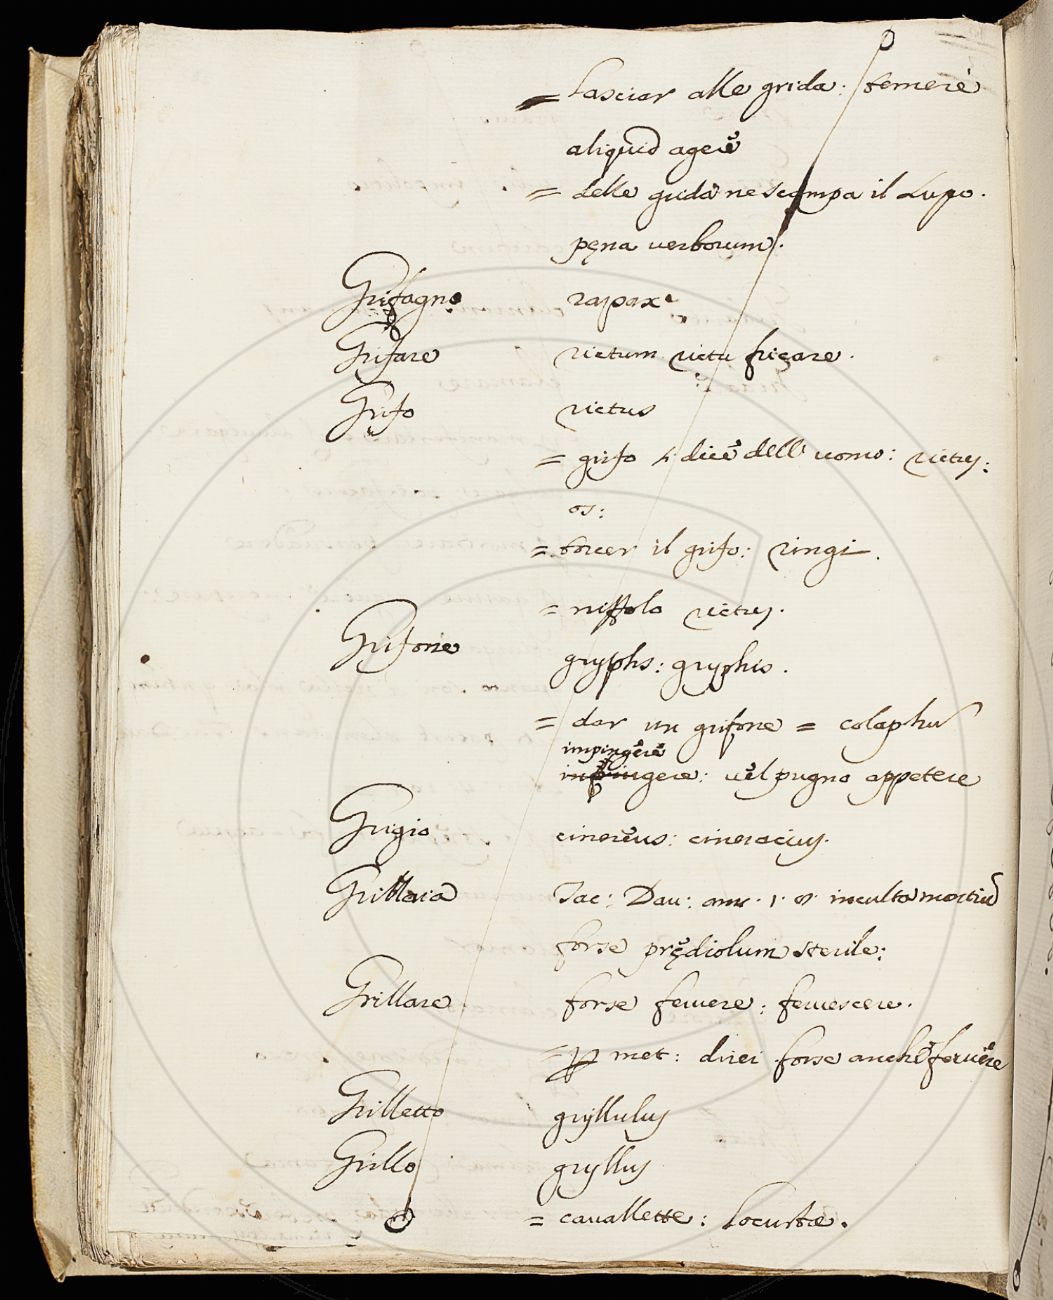 = Lasciar alle grida: temerè
aliquid agerè
= delle grida ne scampa il Lupo.
pęna verborum.
Grifagno rapax
Grifare rictum rictu fricare.
Grifo rictus
= grifo si dice dell' uomo: rictus:
os:
= torcer il grifo: ringi.
= niffolo rictus.
Grifone gryphs: gryphis.
= dar un grifone = colaphũ
impingere
infringere: vel pugno appetere
Grigio cinereus: cineracius.
Grillaia Tac: Dau: ann. 1. inculta
forse prędiolum sterile:
Grillare forse feruere: feruescere.
= p met: direi forse anche feruere
Grilletto gryllulus
Grillo gryllus
= cauallette: Locustæ.